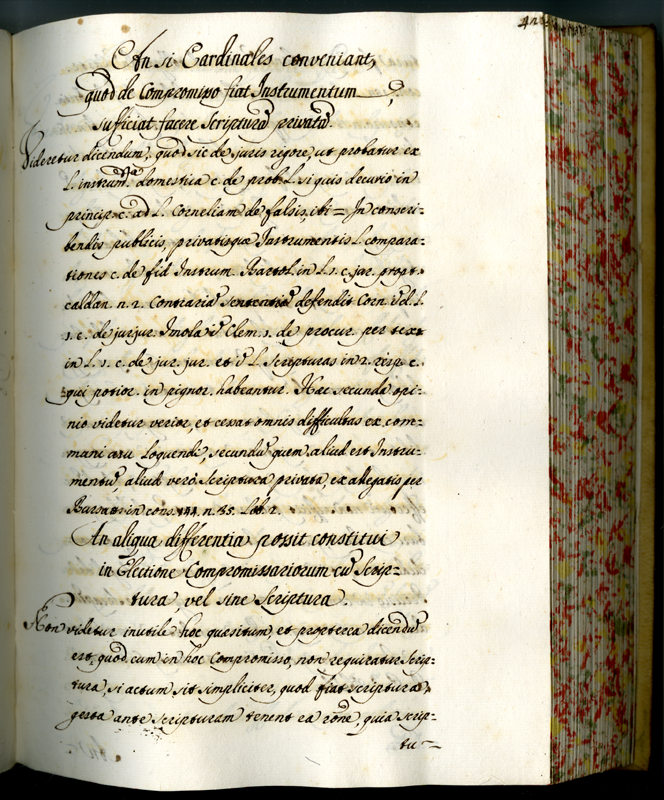 An si Cardinales conveniant,
quod de Compromisso fiat Instrumentum,
sufficiat facere Scripturã privatã?
Videretur dicendum, quod sic de juris rigore, ut probatur ex
L. instrum. domestica c. de prob. L. si quis decurio in
princip. c. ad L. Corneliam de falsis, ibi = In conscri-
bendis publicis, privatisque Instrumentis L. compara-
tiones c. de fid Instrum. Bartol. in L. 1. c. jur. propt.
caldan. n. 2. Contrariã Sententiã defendit Corn. L.
1. c. de jur jur. Imola Clem. 1. de procur. per text
in L. 1. c. de jur. jur. et L. Scripturas in 2. resp. c.
qui potior. in pignor. habeantur. Hac secunda opi-
nio videtur verior, et cessat omnis difficultas ex com-
muni usu Loquendi, secundũ quem aliud est Instru-
mentũ, aliud verò Scriptura privata, ex allegatis per
Bursat in cons. 144. n. 35. Lib. 2.
An aliqua differentia possit constitui
in Electione Compromissariorum cũ Scrip-
tura, vel sine Scriptura.
Non videtur inutile hoc quæsitum, et propterea dicendũ
est, quod cum in hoc Compromisso, non requiratur Scrip-
tura, si actum sit simpliciter, quod fiat scriptura,
gesta ante Scripturam tenent ea rõne, quia scrip-
tu-